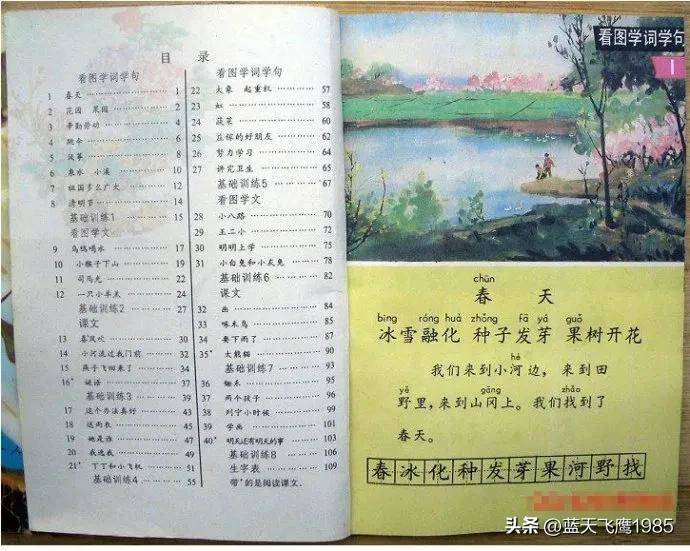 目 录
看图学词学句
1 春天 1
2 花园 果园 2
3 辛勤劳动 4
4 跳伞 6
5 风筝 8
6 泉水 小溪 10
7 祖国多么广大 12
8 清明节 14
基础训练1 15
看图学文
9 乌鸦喝水 17
10 小猴子下山 19
11 司马光 22
12 一只小羊羔 24
基础训练2 27
课文
13 春风吹 30
14 小河流过我门前 32
15 燕子飞回来了 35
16* 谜语 37
基础训练3 39
17 这个办法真好 43
18 送雨衣 45
19 她是谁 47
20 我选我 49
21* 丁丁和小飞机 51
基础训练4 55
看图学词学句
22 大象 起重机 57
23 虹 58
24 蔬菜 60
25 庄稼的好朋友 62
26 努力学习 64
27 讲究卫生 65
基础训练5 67
看图学文
28 小八路 70
29 王二小 72
30 明明上学 75
31 小白兔和小灰兔 78
基础训练6 82
课文
32 画 84
33 啄木鸟 85
34 要下雨了 87
35* 大熊猫 90
基础训练7 93
36 锄禾 95
37 两个孩子 96
38 列宁小时候 99
39 学画 101
40* 明天还有明天的事 103
基础训练8 106
生字表 109
带*的是阅读课文.
看图学词学句
1
chūn
春 天
bīng róng huà zhǒng fā yá guǒ
冰雪融化 种子发芽 果树开花
hé
我们来到小河边，来到田
yě gāng zhǎo
野里，来到山冈上。我们找到了
春天。
春冰化种发芽果河野找
头条 @蓝天飞鹰1985